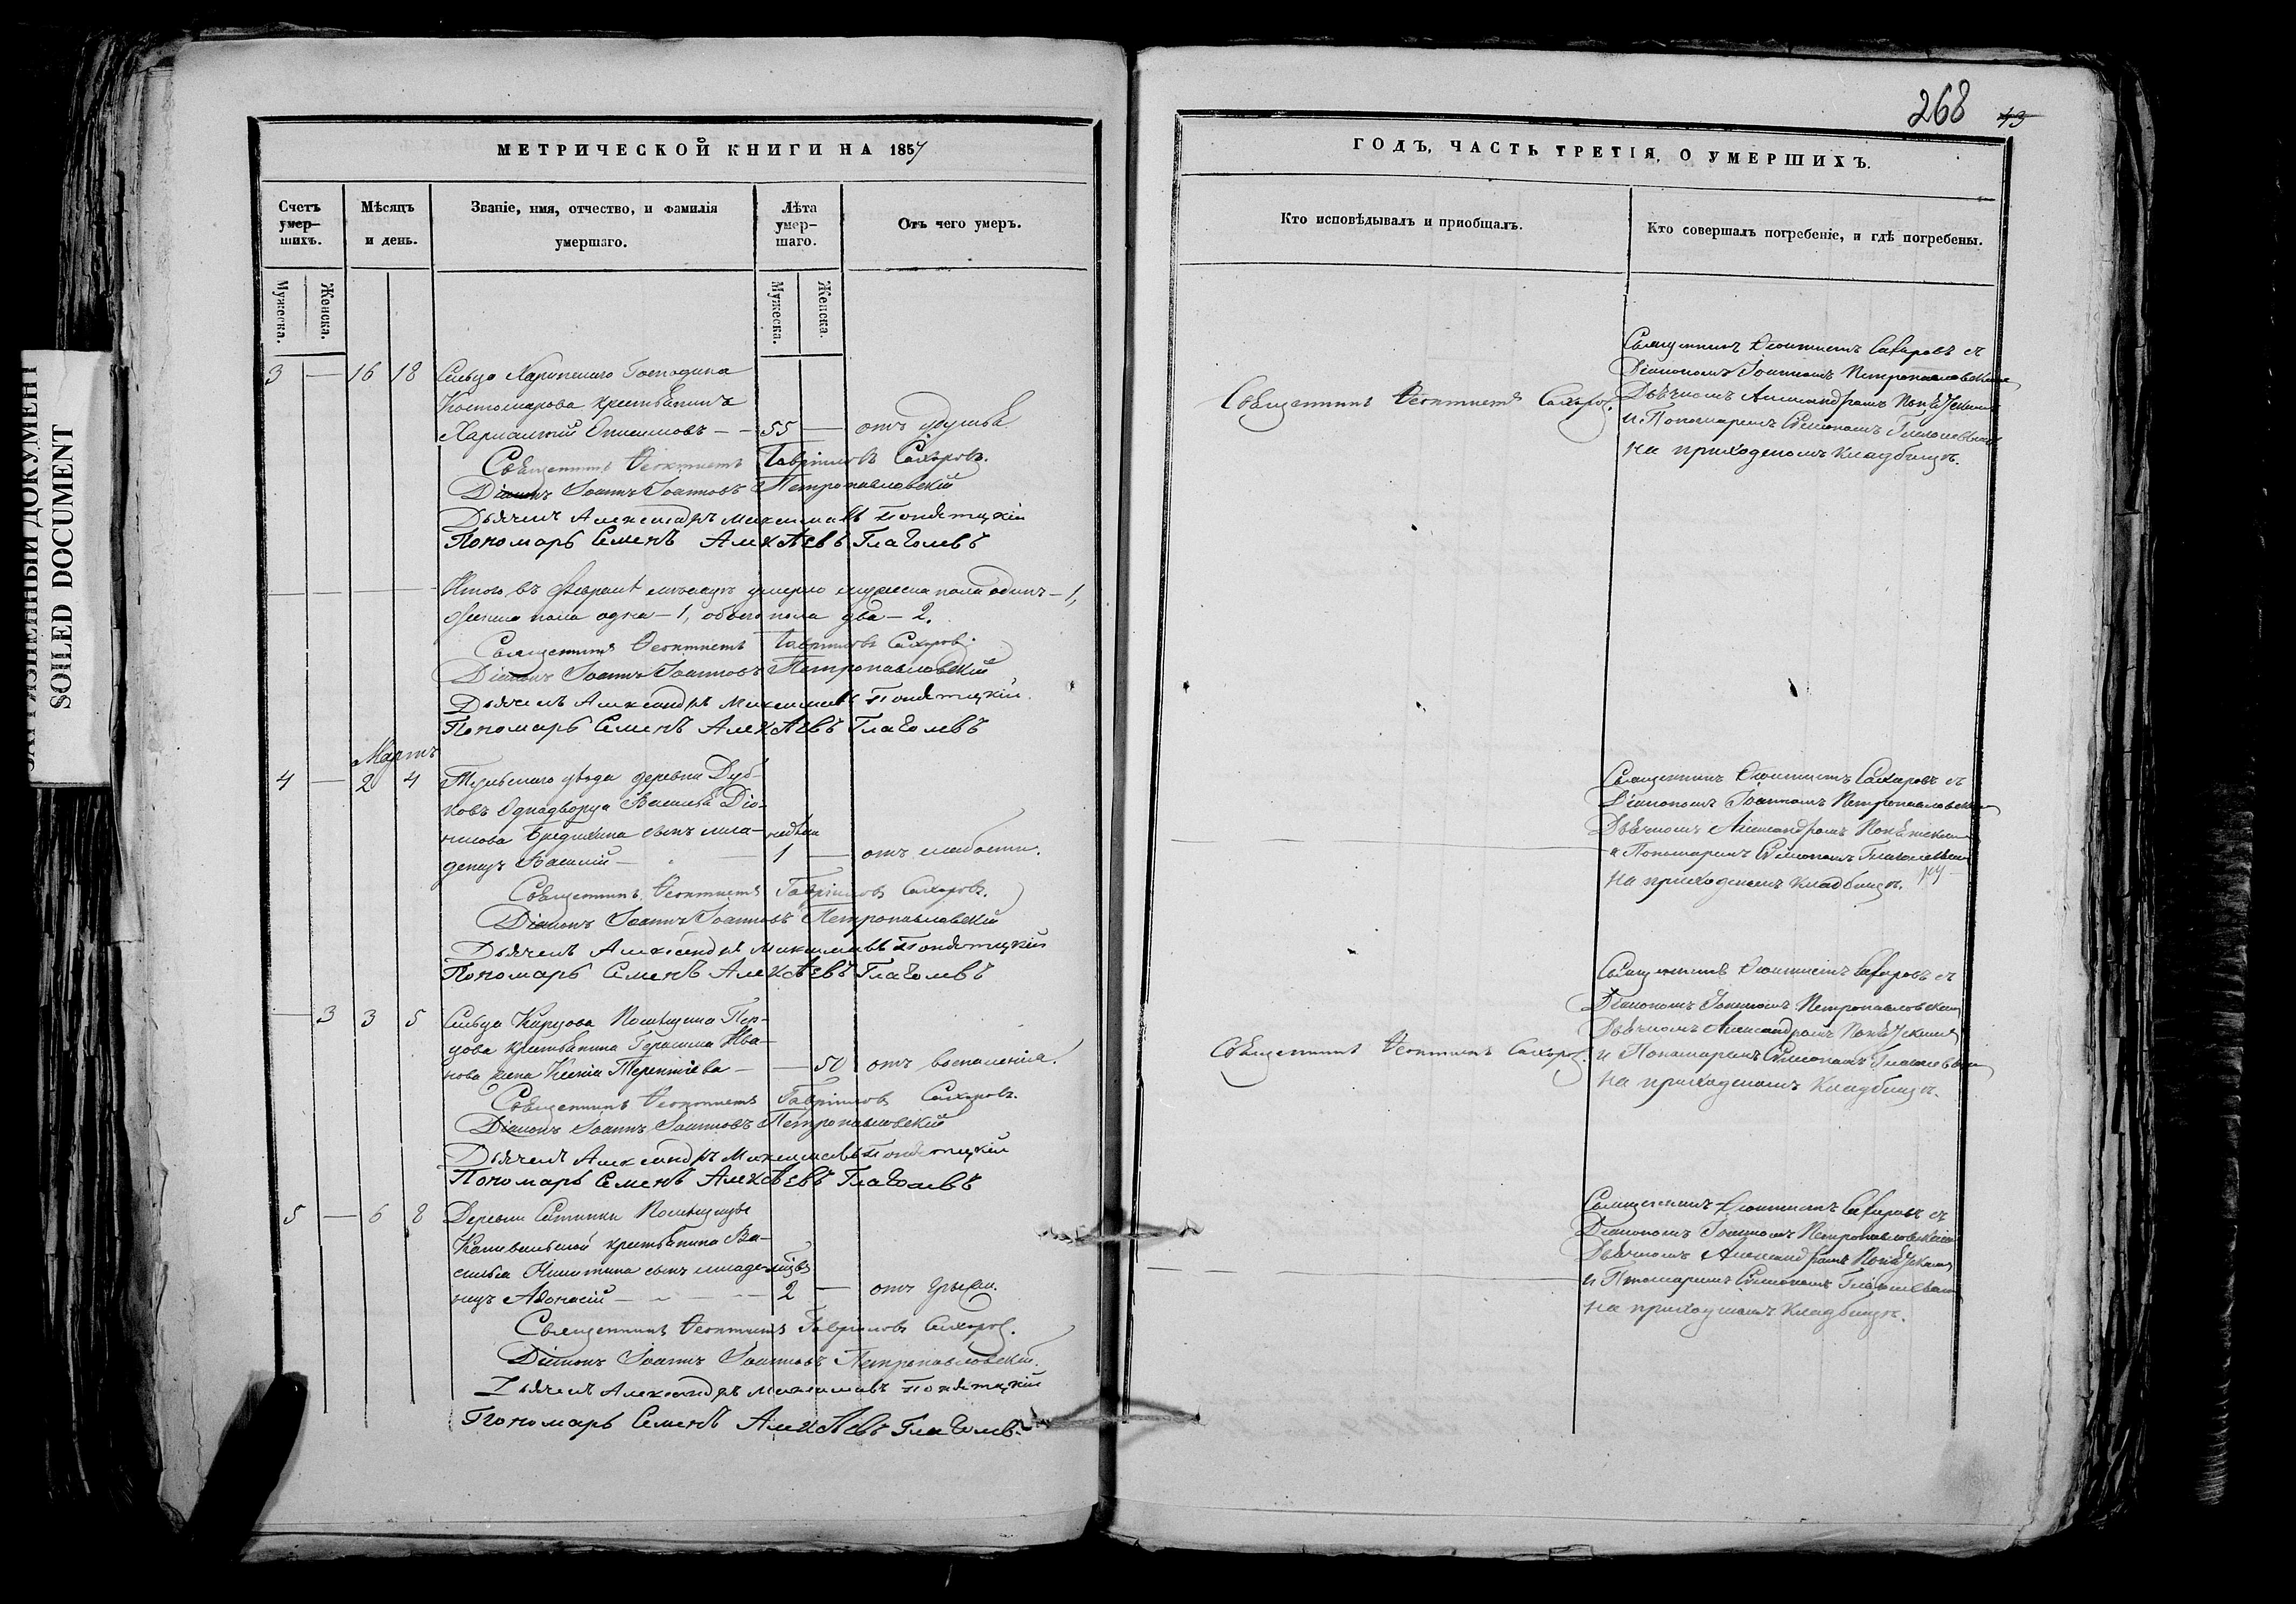 ЗАГРЯЗНЕННЫЙ ДОКУМЕНТ
SOILED DOCUMENT
МЕТРИЧЕСКОЙ КНИГИ НА 1857
Счетъ умер-шихъ.
Мѣсяцъ и день.
Званіе, имя, отчество, и фамилія умершаго.
Лѣта умер-шаго.
Отъ чего умеръ.
Мужеска.
Женска.
Мужеска.
Женска.
3 — 16 18 Сельца Господина
Костомарова крестьянинъ
Харлампій Онисимовъ — 55 — отъ удушья
Священникъ Ѳеоктистъ Гавріиловъ Сахаровъ.
Діаконъ Іоаннъ Іоанновъ Петропавловскій
Дьячекъ Александръ Максимовъ Понятицкій
Пономарь Семенъ Алексѣевъ Глаголевъ
Итого въ Февралѣ мѣсяцѣ умерло мужеска пола одинъ — 1,
женска пола одна — 1, обоего пола два — 2.
Священникъ Ѳеоктистъ Гавріиловъ Сахаровъ.
Діаконъ Іоаннъ Іоанновъ Петропавловскій
Дьячекъ Александръ Максимовъ Понятицкій
Пономарь Семенъ Алексѣевъ Глаголевъ
Мартъ
4 — 2 4 Тульскаго уѣзда деревни Дуб-
ковъ Однодворца Василья Діо-
нисова Бредихина сынъ мла- недѣли
денецъ Василій — 1 — отъ слабости.
Священникъ Ѳеоктистъ Гавріиловъ Сахаровъ.
Діаконъ Іоаннъ Іоанновъ Петропавловскій
Дьячекъ Александръ Максимовъ Понятицкій
Пономарь Семенъ Алексѣевъ Глаголевъ
— 3 3 5 Сельца Помѣщика
крестьянина Герасима Ива-
нова жена Ксенія Терентіева — — 50 отъ воспаленія.
Священникъ Ѳеоктистъ Гавріиловъ Сахаровъ.
Діаконъ Іоаннъ Іоанновъ Петропавловскій
Дьячекъ Александръ Максимовъ Понятицкій
Пономарь Семенъ Алексѣевъ Глаголевъ
5 — 6 8 Деревни Помѣщицы
крестьянина Ва-
силья Никитина сынъ младе-
нецъ Аѳонасій — 2 — отъ грыжи.
Священникъ Ѳеоктистъ Гавріиловъ Сахаровъ.
Діаконъ Іоаннъ Іоанновъ Петропавловскій.
Дьячекъ Александръ Максимовъ Понятицкій
Пономарь Семенъ Алексѣевъ Глаголевъ
268 43
ГОДЪ, ЧАСТЬ ТРЕТІЯ, О УМЕРШИХЪ.
Кто исповѣдывалъ и пріобщалъ.
Кто совершалъ погребеніе, и гдѣ погребены.
Священникъ Ѳеоктистъ Сахаровъ.
Священникъ Ѳеоктистъ Сахаровъ съ
Діакономъ Іоанномъ Петропавловскимъ
Дьячкомъ Александромъ Понятицкимъ
и Пономаремъ Симеономъ Глаголевымъ
на приходскомъ кладбищѣ.
Священникъ Ѳеоктистъ Сахаровъ съ
Діакономъ Іоанномъ Петропавловскимъ
Дьячкомъ Александромъ Понятицкимъ
и Пономаремъ Симеономъ Глаголевымъ
на приходскомъ кладбищѣ.
Священникъ Ѳеоктистъ Сахаровъ.
Священникъ Ѳеоктистъ Сахаровъ съ
Діакономъ Іоанномъ Петропавловскимъ
Дьячкомъ Александромъ Понятицкимъ
и Пономаремъ Симеономъ Глаголевымъ
на приходскомъ кладбищѣ.
Священникъ Ѳеоктистъ Сахаровъ съ
Діакономъ Іоанномъ Петропавловскимъ
Дьячкомъ Александромъ Понятицкимъ
и Пономаремъ Симеономъ Глаголевымъ
на приходскомъ кладбищѣ.